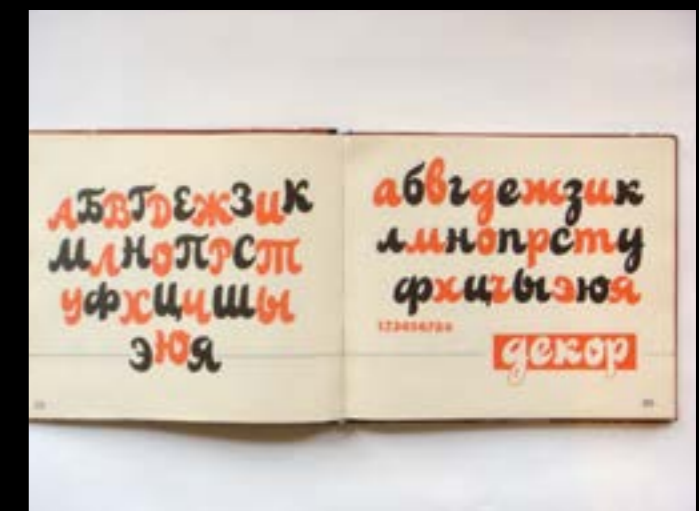 АБВГДЕЖЗИК
МЛНОПРСТ
УФХЦЧШЫ
ЭЮЯ
абвгдежзик
лмнопрсту
фхцчыэюя
декор